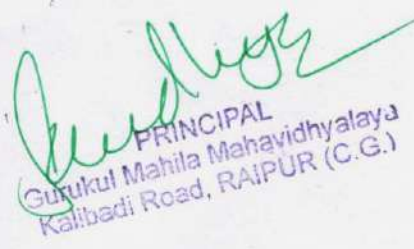 PRINCIPAL
Gurukul Mahila Mahavidhyalaya
Kalibadi Road, RAIPUR (C.G.)